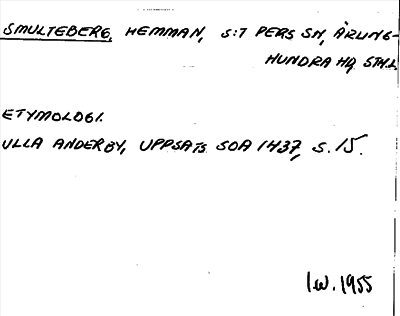 SMULTEBERG, HEMMAN, S:T PERS SN, ÄRLING-
HUNDRA HD, STH.L.
ETYMOLOGI.
ULLA ANDERBY, UPPSATS SOA 1437, S. 15.
I.W. 1955